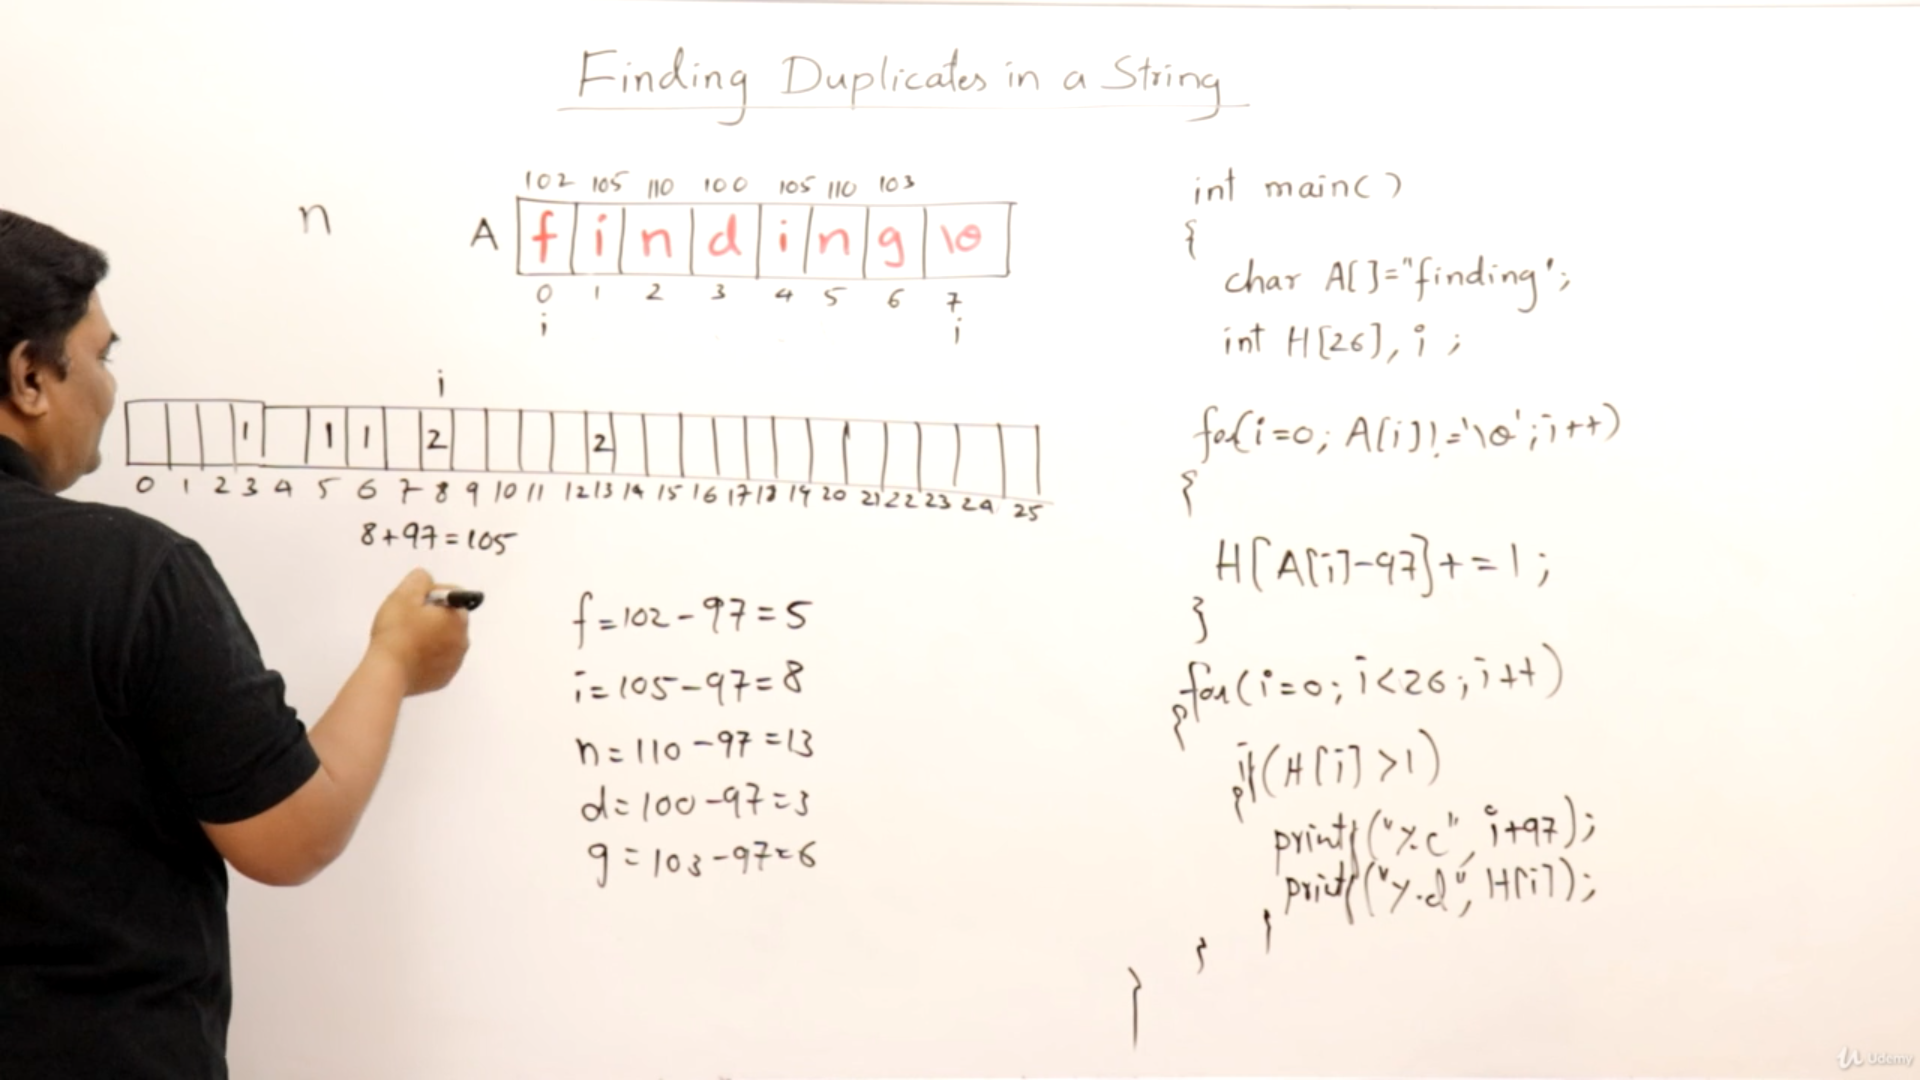 Finding Duplicates in a String
102 105 110 100 105 110 103
n
A f i n d i n g \0
0 1 2 3 4 5 6 7
i i
i
1 1 1 2 2
0 1 2 3 4 5 6 7 8 9 10 11 12 13 14 15 16 17 18 19 20 21 22 23 24 25
8+97=105
f=102-97=5
i=105-97=8
n=110-97=13
d=100-97=3
g=103-97=6
int main()
{
char A[]="finding";
int H[26], i;
for(i=0; A[i]!='\0'; i++)
{
H[A[i]-97]+=1;
}
for(i=0; i<26; i++)
{
if(H[i]>1)
{
printf("%c", i+97);
printf("%d", H[i]);
}
}
}
Udemy